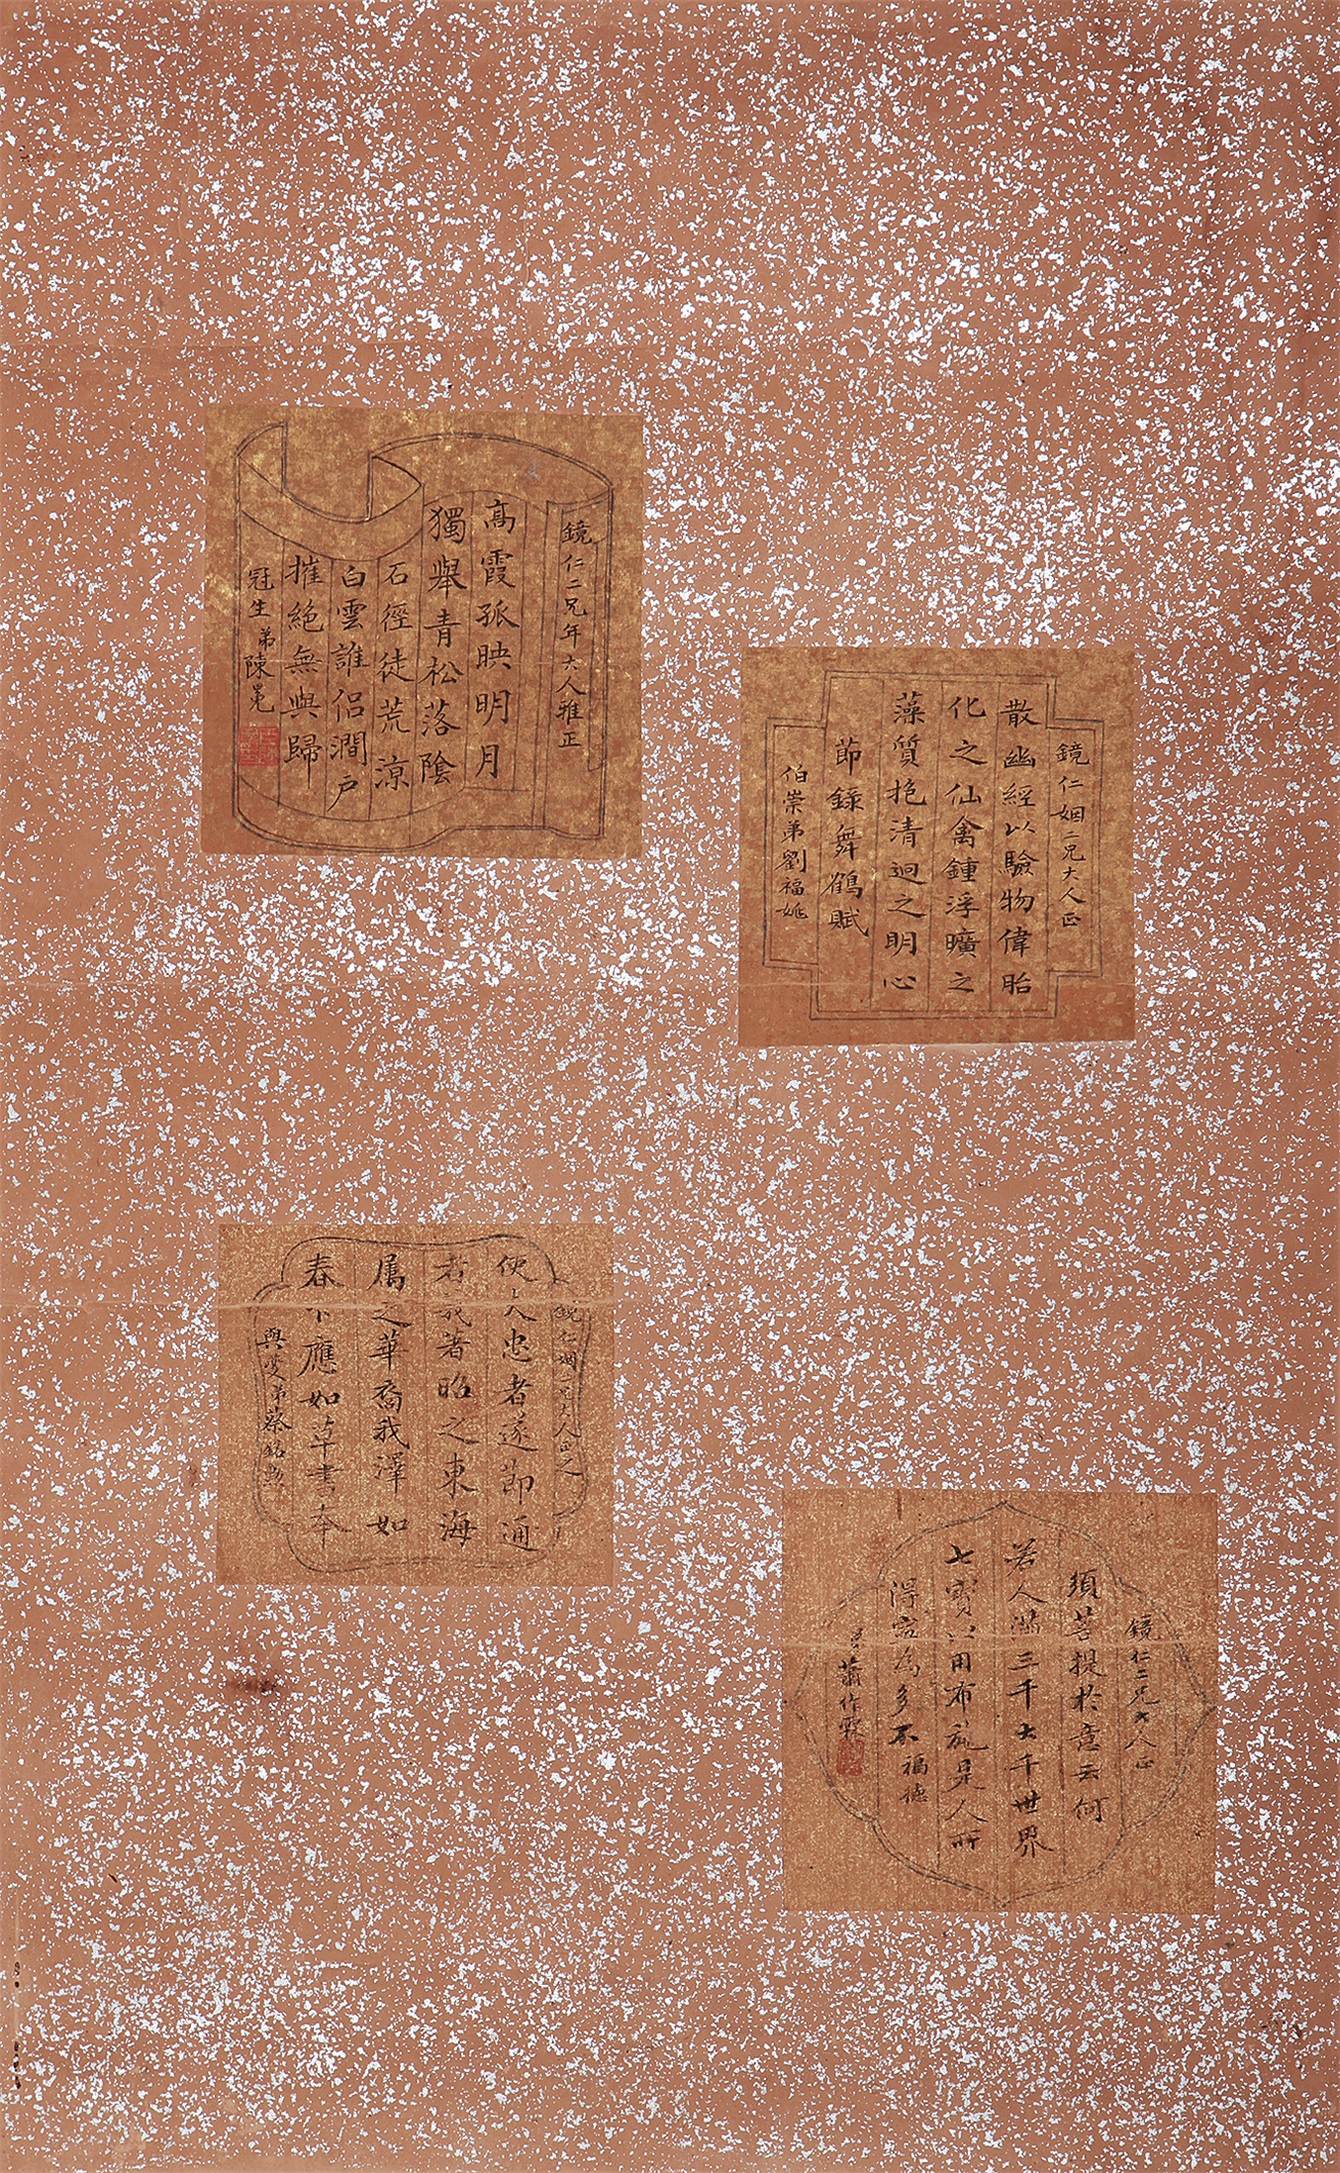 散幽經以驗物偉胎
化之仙禽鍾浮曠之
藻質抱清迥之明心
節錄舞鶴賦
鏡仁姻二兄大人正
伯崇弟劉福姚
鏡仁二兄年大人雅正
高霞孤映明月
獨舉青松落陰
白雲誰侶澗戶
摧絕無與歸
石徑徒荒涼
冠生弟陳冕
鏡仁二兄大人正
須菩提於意云何
若人滿三千大千世界
七寶以用布施是人所
得寧為多不福德
弟蕭作霖
鏡仁姻二兄大人正之
使大忠者遂節通
者義著昭之東海
屬之華裔我澤如
春下應如草書奉
與叟弟蔡銘勲